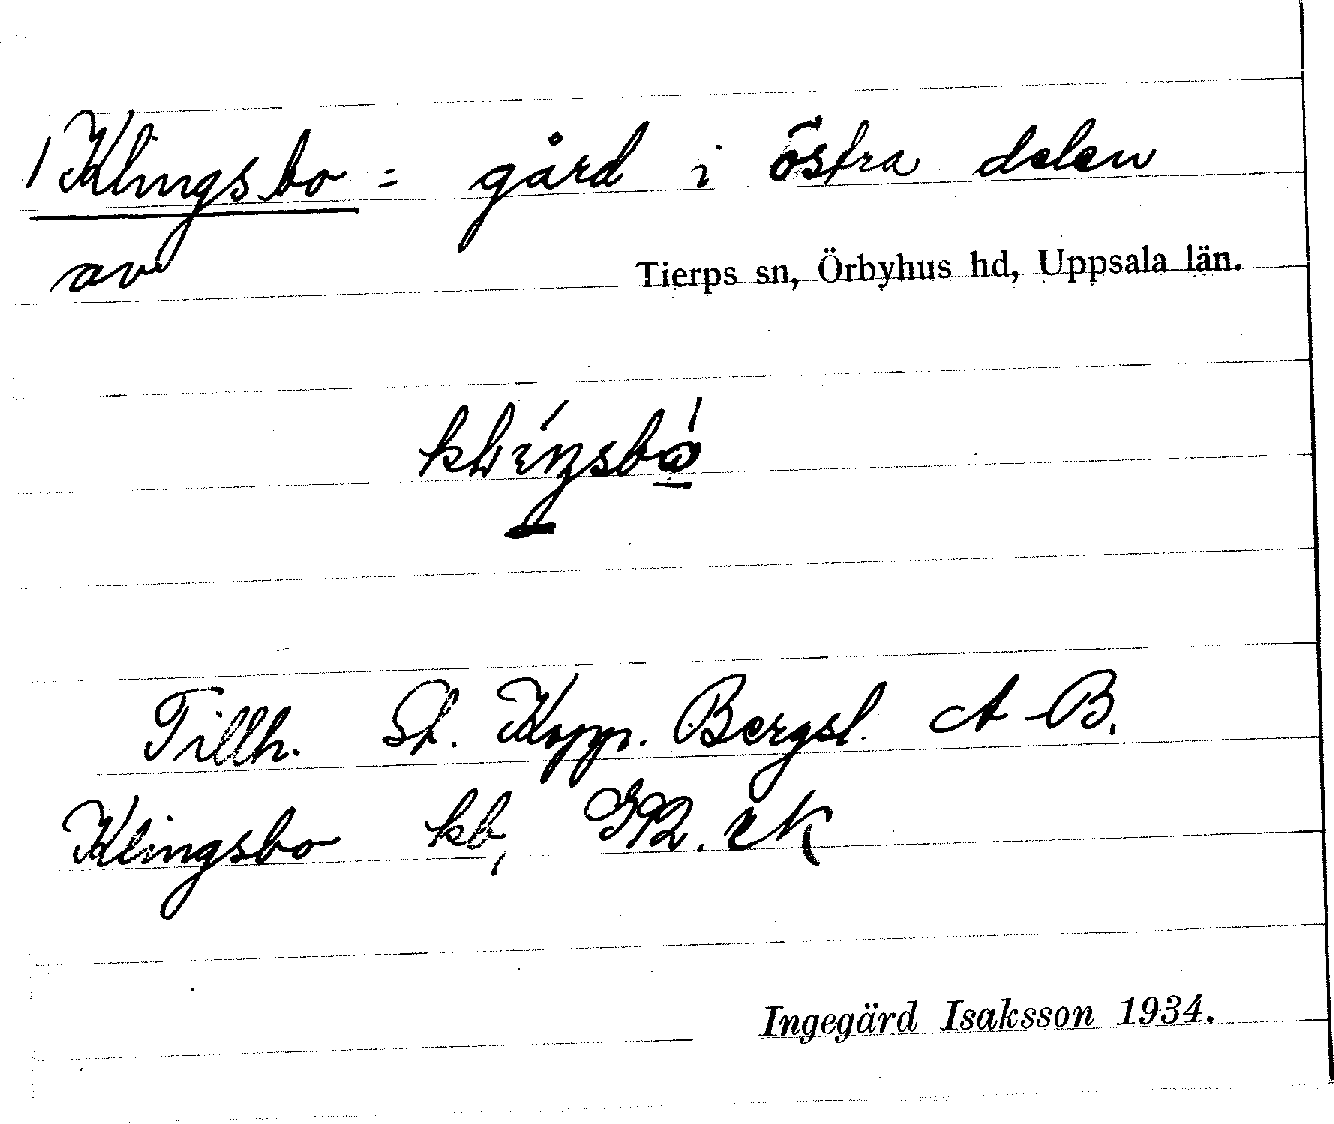 1) Klingsbo = gård i östra delen
av Tierps sn, Örbyhus hd, Uppsala län.
Tillh. St. Kopp. Bergsl. A-B.
Klingsbo kb,
Ingegärd Isaksson 1934.